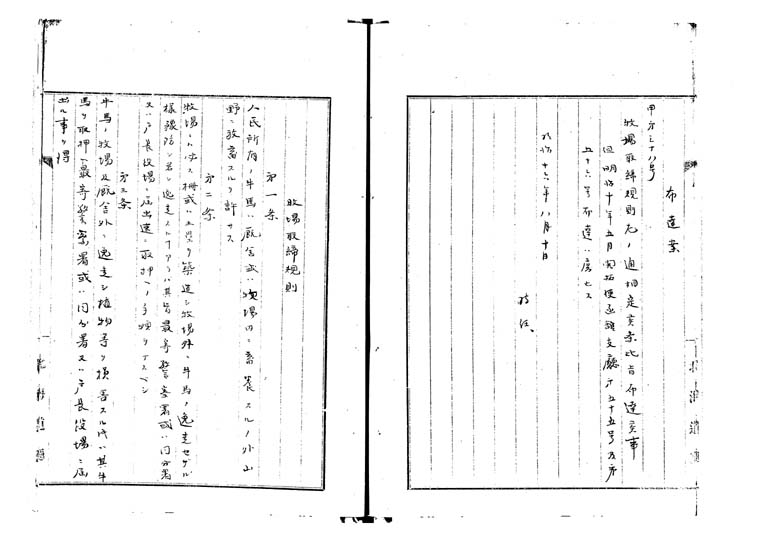 布達案
甲第三十八号
牧場取締規則左ノ通相定候条此旨布達候事
但明治十年五月開拓使函館支廳第五十五号及第
五十六号布達ハ廃止ス
明治十六年八月十日
牧場取締規則
第一条
人民所有ノ牛馬ハ厩舎或ハ牧場内ニ畜養スルノ外山
野ニ放畜スルヲ許サス
第二条
牧場ニハ必ス柵或ハ土塁ヲ築造シ牧場外ニ牛馬ノ逸走セサル
様豫防シ若シ逸走スルコトアラハ其旨最寄警察署或ハ同分署
又ハ戸長役場ニ届出速ニ取押ヘノ手順ヲナスベシ
第三条
牛馬ノ牧場及厩舎外ニ逸走シ植物等ヲ損害スル時ハ其牛
馬ヲ取押ヘ最寄警察署或ハ同分署又ハ戸長役場ニ届
出ル事ヲ得